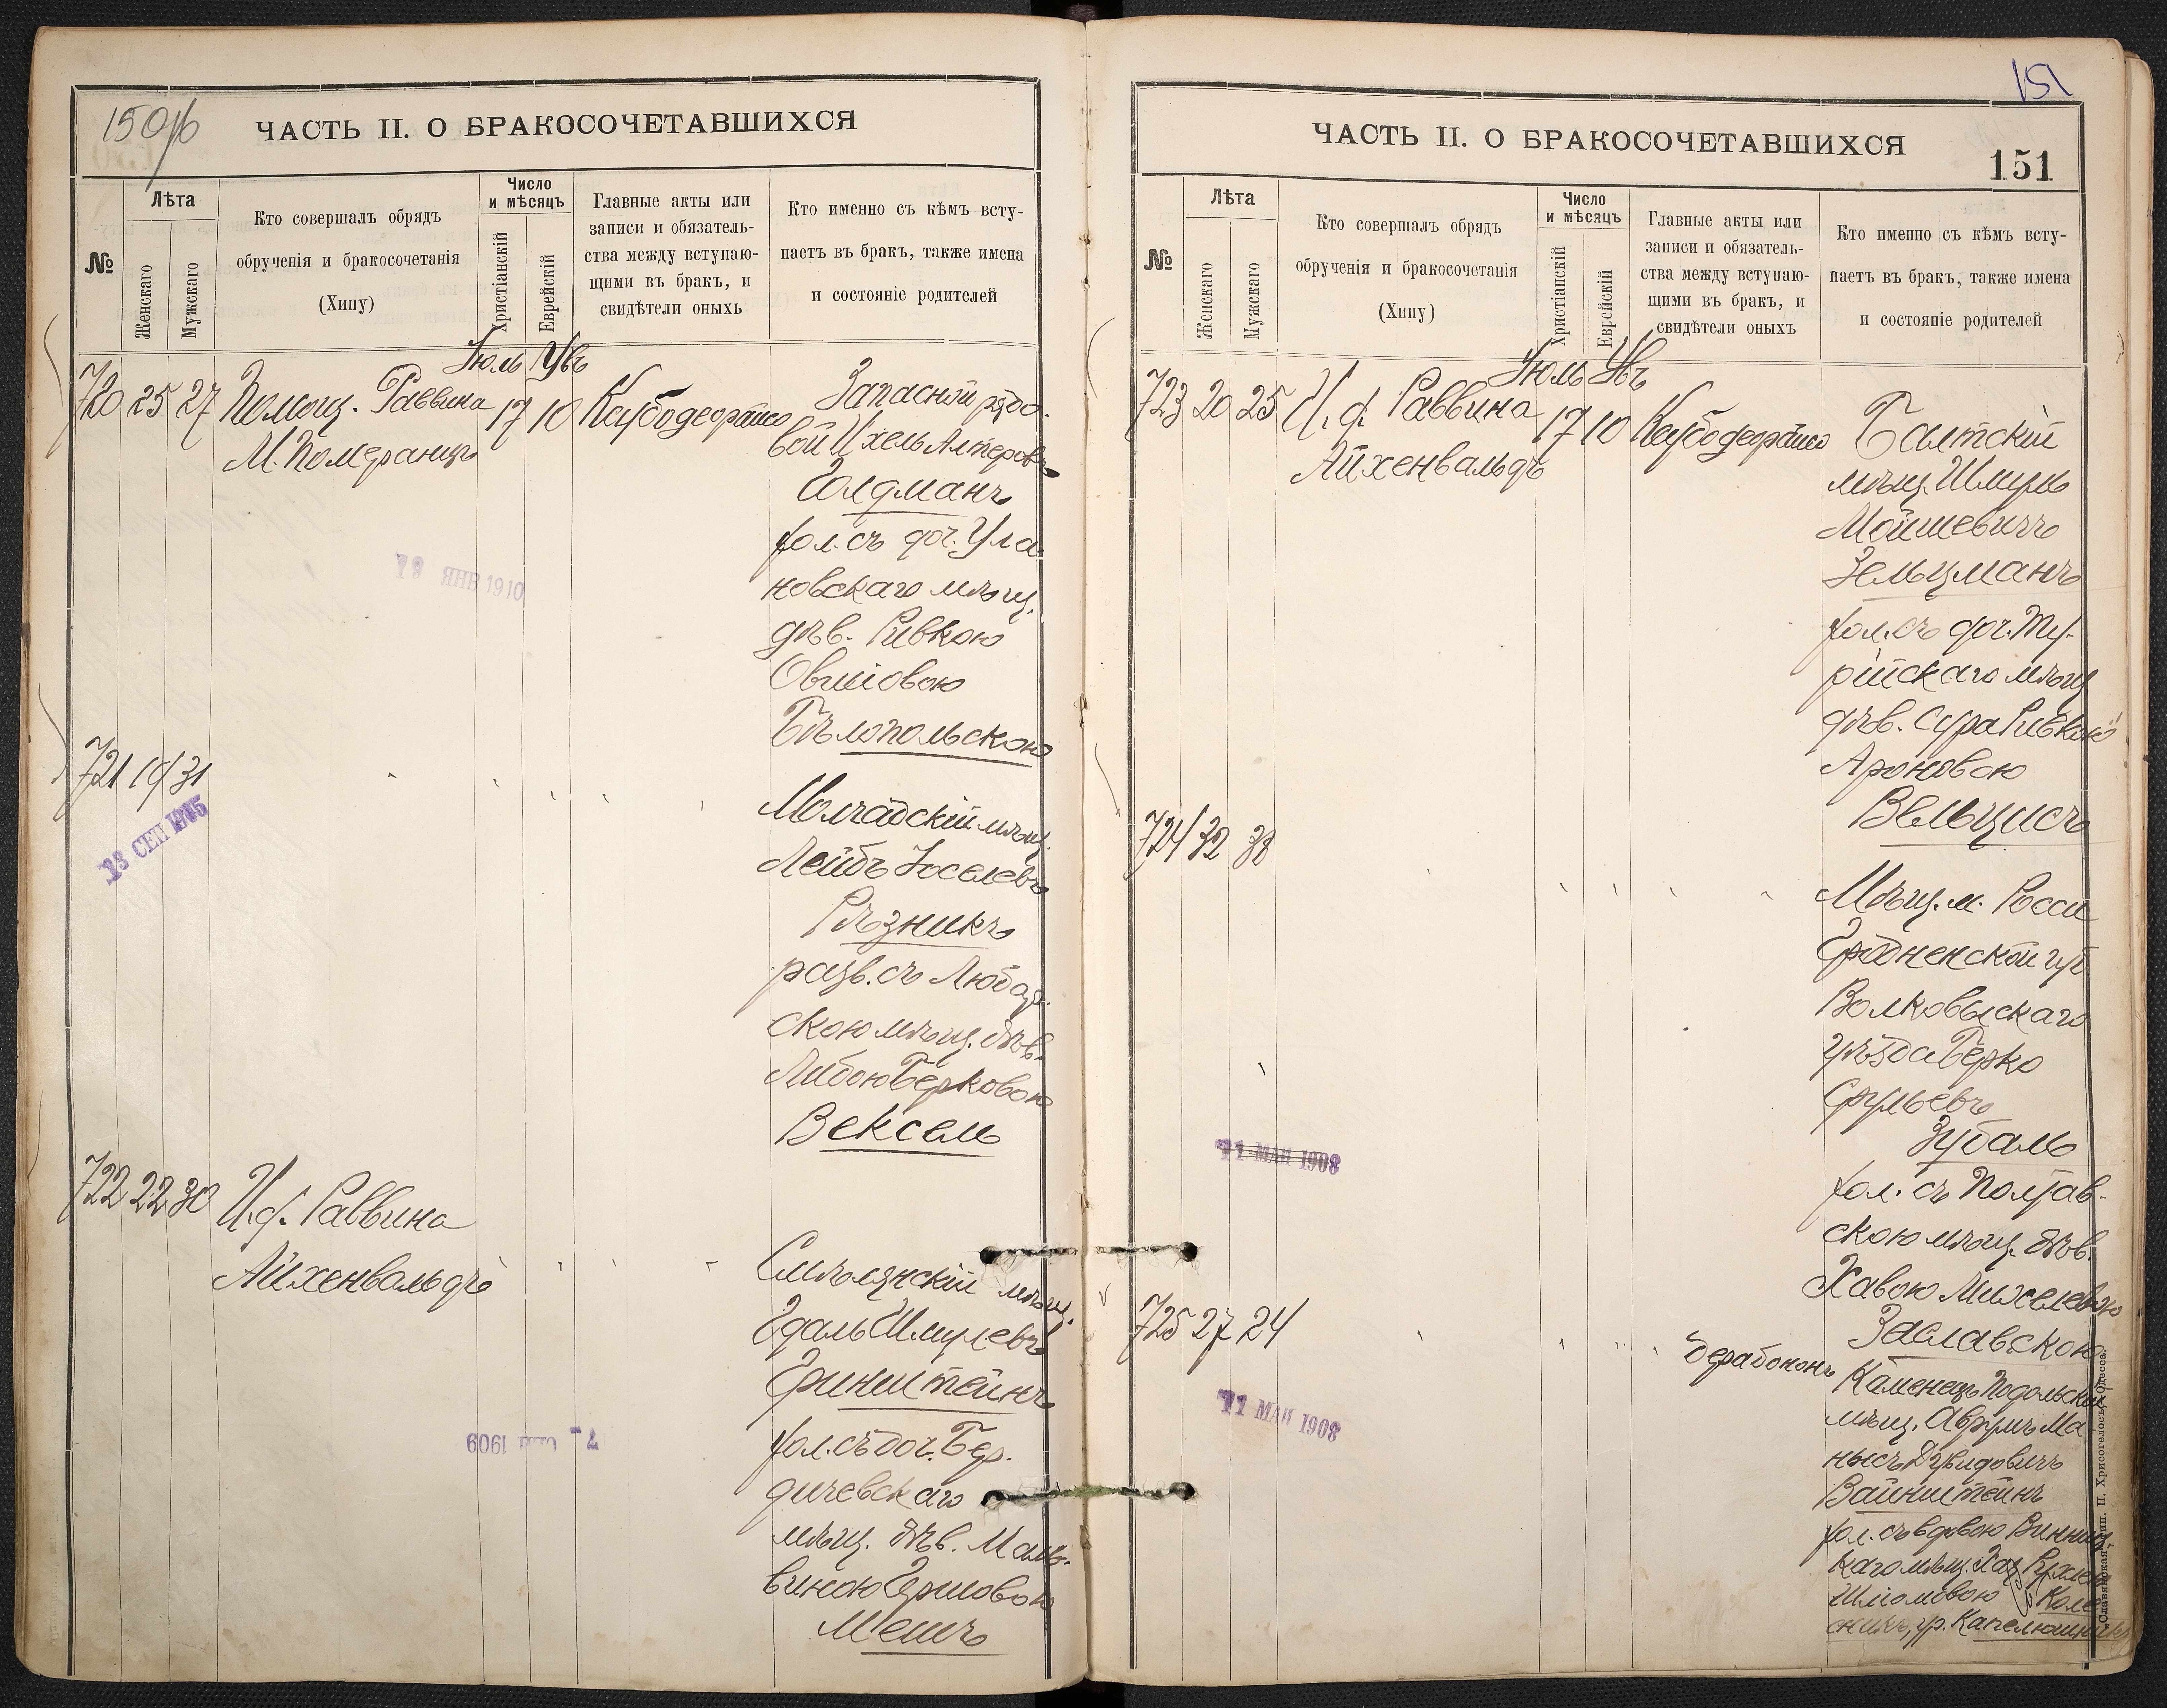 150/б
ЧАСТЬ II. О БРАКОСОЧЕТАВШИХСЯ
№
Лѣта
Женскаго
Мужскаго
Кто совершалъ обрядъ
обрученія и бракосочетанія
(Хипу)
Число
и мѣсяцъ
Христіанскій
Еврейскій
Главные акты или
записи и обязатель-
ства между вступаю-
щими въ бракъ, и
свидѣтели оныхъ
Кто именно съ кѣмъ всту-
паетъ въ бракъ, также имена
и состояніе родителей
Іюль Увъ
720 25 27 Помощ. Раввина 17 10
М. Померанцъ
Запасной рядо-
вой Ихель Алтеровъ
Голдманъ
хол. съ доч. Ула-
новскаго мѣщ.
дѣв. Ривкою
Овшіовою
Бѣлопольскою
13 ЯНВ 1910
721 19 31
13 СЕН 1915
Молчадскій мѣщ.
Лейбъ Іоселевъ
Рѣзникъ
разв. съ Любар-
скою мѣщ. дѣв.
Либою Берковою
Вексель
722 22 30 И. д. Раввина
Айхенвальдъ
Смѣлянскій мѣщ.
Эдаль Шмулевъ
Гринштейнъ
хол. съ доч. Бер-
дичевскаго
мѣщ. дѣв. Маль-
виною Гершовою
Мешъ
7 СЕН 1909
151
ЧАСТЬ II. О БРАКОСОЧЕТАВШИХСЯ
151
№
Лѣта
Женскаго
Мужскаго
Кто совершалъ обрядъ
обрученія и бракосочетанія
(Хипу)
Число
и мѣсяцъ
Христіанскій
Еврейскій
Главные акты или
записи и обязатель-
ства между вступаю-
щими въ бракъ, и
свидѣтели оныхъ
Кто именно съ кѣмъ всту-
паетъ въ бракъ, также имена
и состояніе родителей
Іюль Увъ
723 20 25 И. д. Раввина 17 10
Айхенвальдъ
Балтскій
мѣщ. Шмуль
Мойшевичъ
Зельцманъ
хол. съ доч. Ту-
рійскаго мѣщ
дѣв. Сура Ривкою
Ароновою
Вельцисъ
724 32 38
Мѣщ. м. Росси
Гродненской губ
Волковыскаго
уѣзда Берко
Срульевъ
Зубаль
хол. съ Полтав-
скою мѣщ. дѣв.
Хавою Мижелевою
Заславскою
11 МАЙ 1908
725 27 24
Дерабононъ
Каменецъ Подольскій
мѣщ. Аврумъ Ма-
нысъ Дувидовичъ
Вайнштейнъ
хол. съ вдовою Винниц
каго мѣщ. Хая Рухлею
Шліомовою Коле
сникъ, ур. Капелюшникъ
11 МАЙ 1908
Славянская тип. Н. Хрисогелосъ, Одесса.